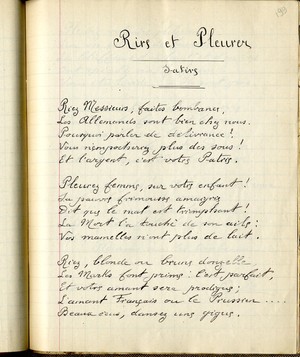 193
Rire et Pleurer
Satire
Riez Messieurs, faites bombance,
Les Allemands sont bien chez nous.
Pourquoi parler de délivrance!
Vous n'empocherez plus des sous!
Et l'argent, c'est votre Patrie.
Pleurez femme, sur votre enfant!
Sa pauvre frimousse amaigrie
Dit que le mal est triomphant!
La Mort l'a touché de son aile;
Vos mamelles n'ont plus de lait.
Riez, blonde ou brune donzelle
Les Marks font prime: c'est parfait,
Et votre amant sera prodigue;
L'amant Français ou le Prussien....
Beaux yeux, dansez une gigue.